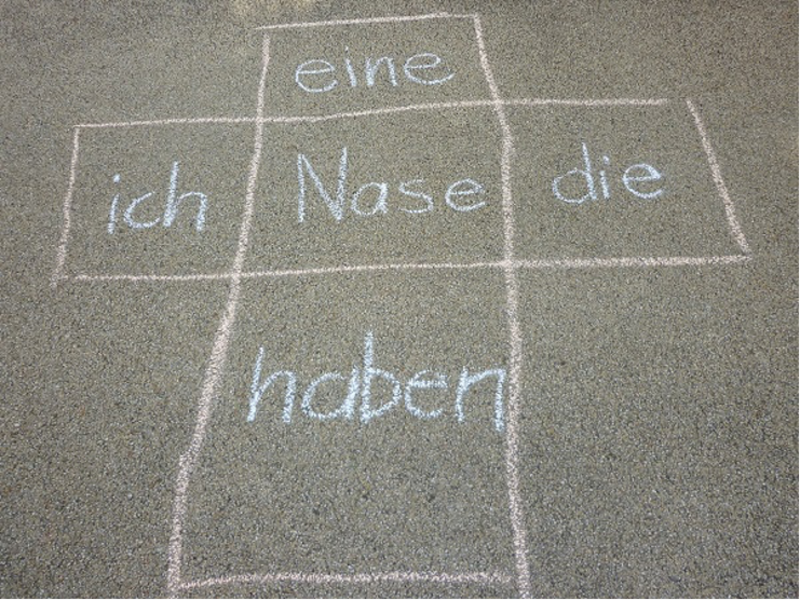 eine
ich Nase die
haben